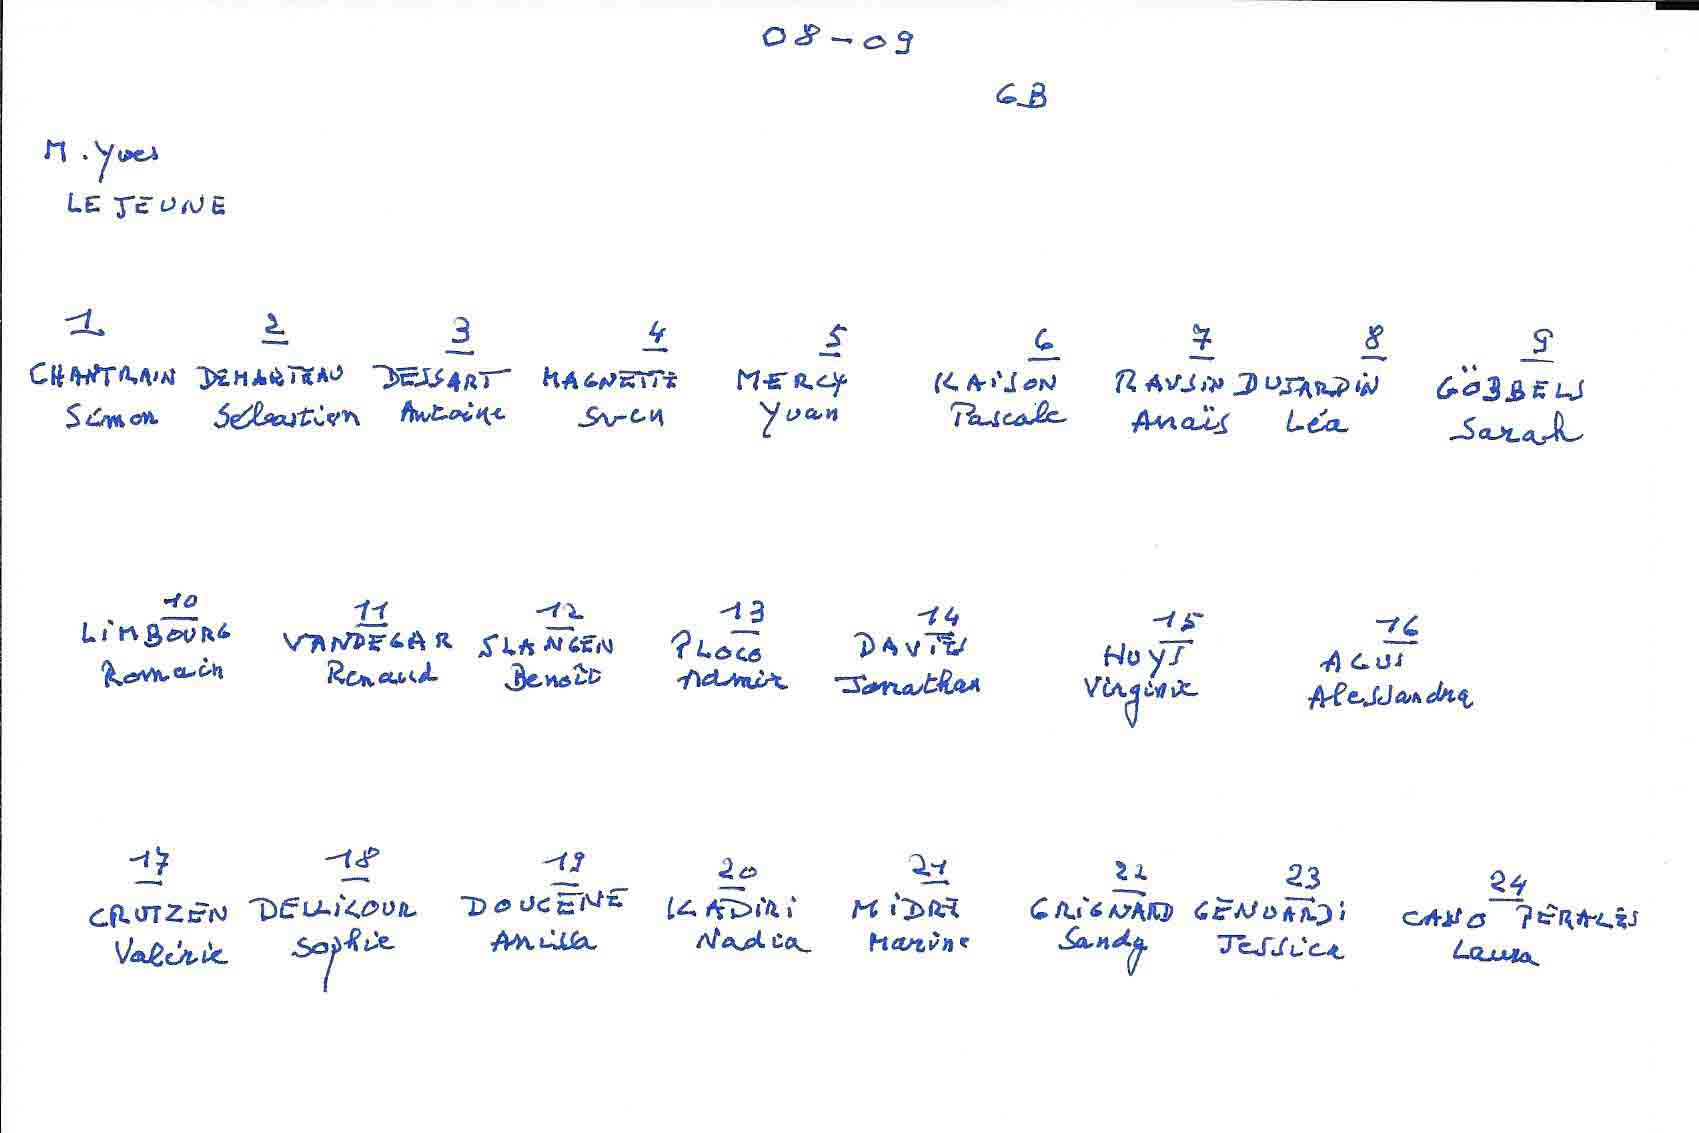 08-09
6B
M. Yves
LEJEUNE
1 2 3 4 5 6 7 8 9
CHANTRAIN DEMARTEAU DESSART MAGNETTE MERCY KAISON RAUSIN DUJARDIN GÖBBELS
Simon Sébastien Antoine Sven Yvan Pascale Anaïs Léa Sarah
10 11 12 13 14 15 16
LIMBOURG VANDEGAR SLANGEN PLOCO DAVIES HUYS AGUS
Romain Renaud Benoît Admir Jonathan Virginie Alessandra
17 18 19 20 21 22 23 24
CRUTZEN DELLICOUR DOUCÈNE KADIRI MIDRE GRIGNARD GENUARDI CANO PERALES
Valérie Sophie Nadia Marine Sandy Jessica Laura